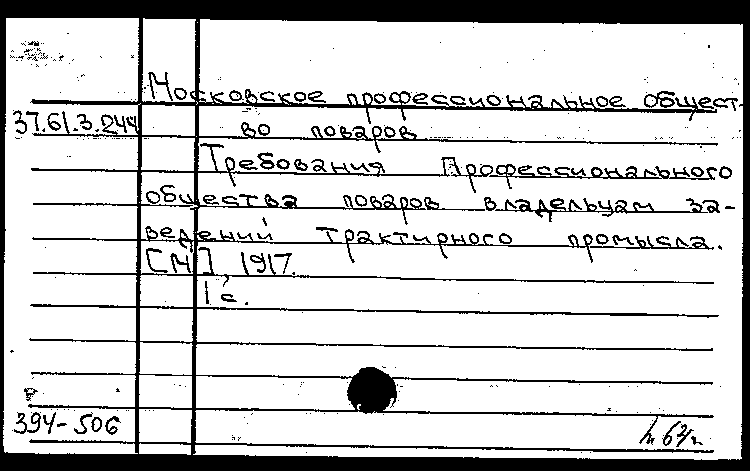 Московское профессиональное общест-
37.61.3.244 во поваров
Требования Профессионального
общества поваров владельцам за-
ведений трактирного промысла.
[М], 1917.
1 с.
394-506